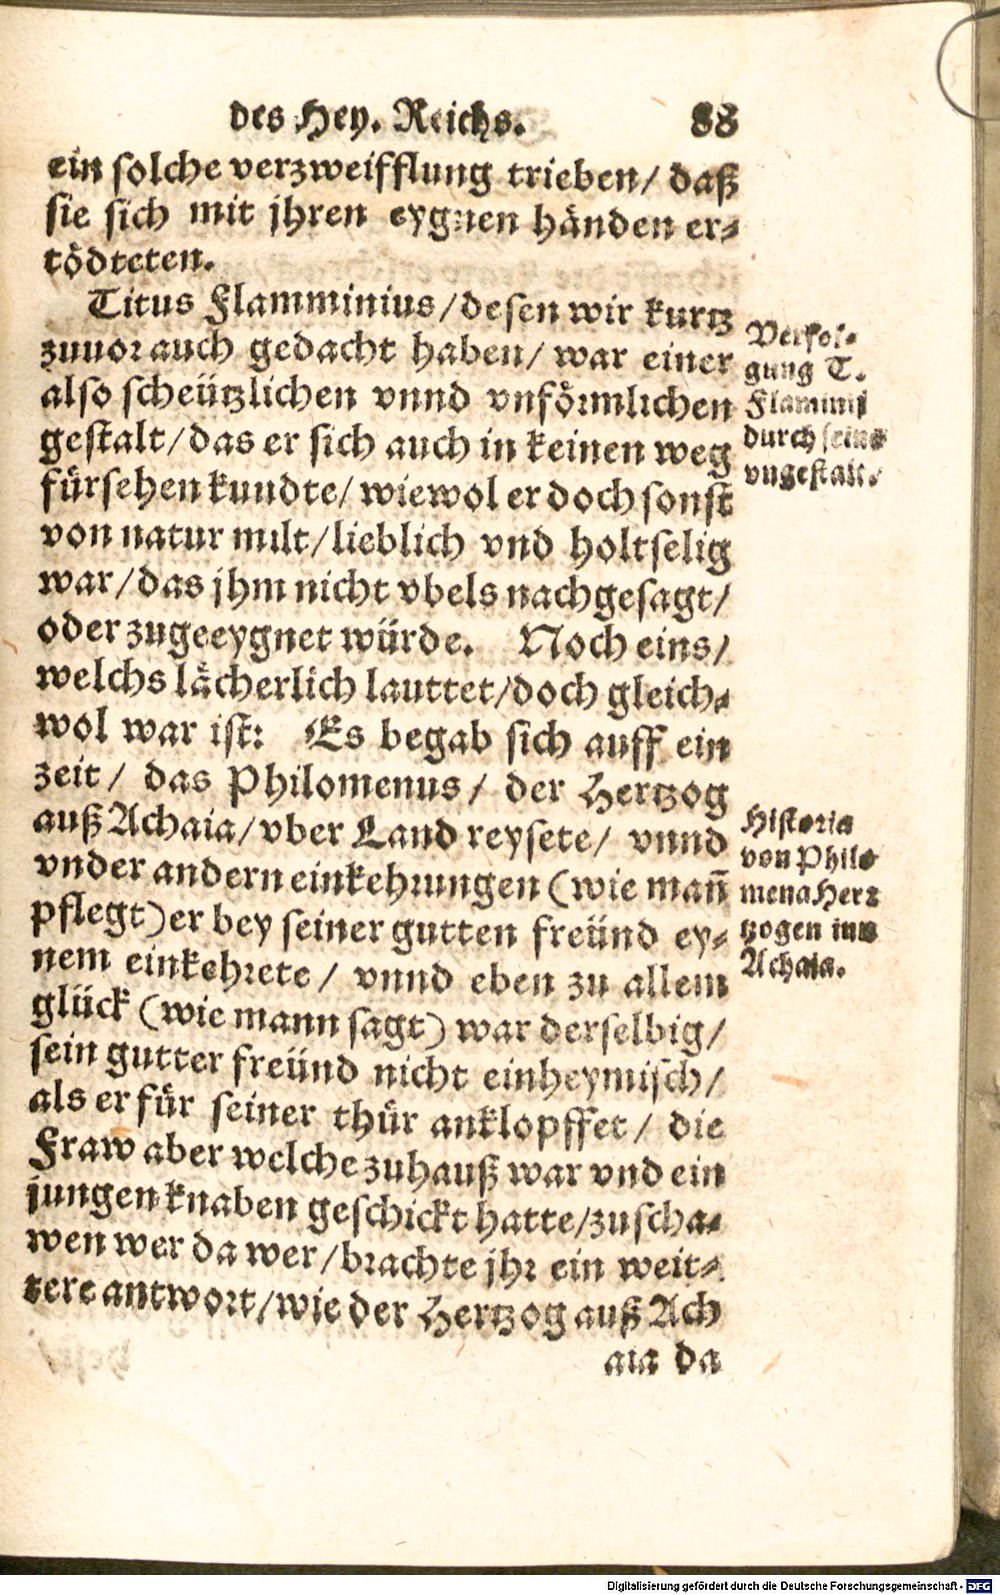 des Hey. Reichs. 88
ein solche verzweifflung trieben/ daß
sie sich mit jhren eygnen händen er-
tödteten.
Titus Flamminius/desen wir kurtz
zuuor auch gedacht haben/ war einer
also scheützlichen vnnd vnförmlichen
gestalt/das er sich auch in keinen weg
fürsehen kundte/ wiewol er doch sonst
von natur milt/lieblich vnd holtselig
war/das jhm nicht vbels nachgesagt/
oder zugeeygnet würde. Noch eins/
welchs lächerlich lauttet/doch gleich-
wol war ist: Es begab sich auff ein
zeit/ das Philomenus/ der Hertzog
auß Achaia/vber Land reysete/ vnnd
vnder andern einkehrungen (wie mañ
pflegt) er bey seiner gutten freünd ey-
nem einkehrete/ vnnd eben zu allem
glück (wie mann sagt) war derselbig/
sein gutter freünd nicht einheymisch/
als er für seiner thür anklopffet/ die
Fraw aber welche zuhauß war vnd ein
jungen knaben geschickt hatte/zuscha-
wen wer da wer/brachte jhr ein weit-
tere antwort/wie der Hertzog auß Ach
aia da
Verfol-
gung T.
Flaminij
durch seine
vngestalt.
Historia
von Philo
mena Hertz
zogen inn
Achaia.
Digitalisierung gefördert durch die Deutsche Forschungsgemeinschaft - DFG